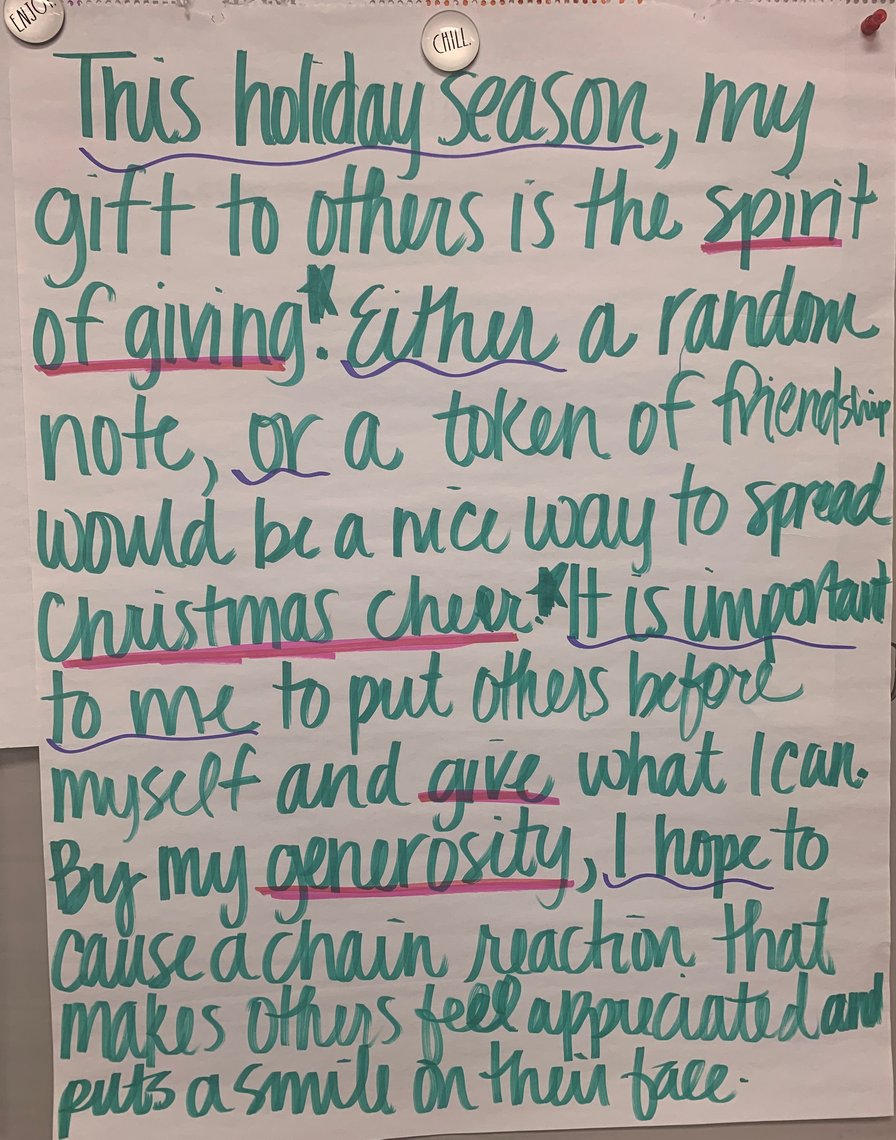 ENJOY
CHILL.
This holiday season, my
gift to others is the spirit
of giving. Either a random
note, or a token of friendship
would be a nice way to spread
Christmas cheer. It is important
to me to put others before
myself and give what I can.
By my generosity, I hope to
cause a chain reaction that
makes others feel appreciated and
puts a smile on their face.